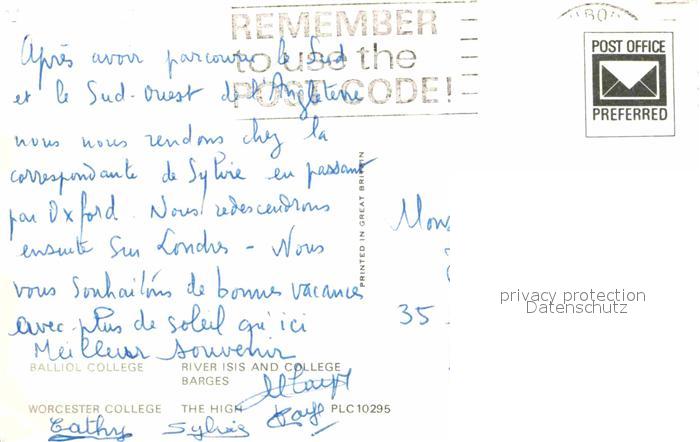 REMEMBER
to use the
POST CODE!
POST OFFICE
PREFERRED
Après avoir parcouru le Sud
et le Sud-Ouest de l'Angleterre
nous nous rendons chez la
correspondante de Sylvie en passant
par Oxford. Nous redescendrons
ensuite sur Londres - Nous
vous souhaitons de bonnes vacances
avec plus de soleil qu'ici
Meilleur souvenir
PRINTED IN GREAT BRITAIN
35
privacy protection
Datenschutz
BALLIOL COLLEGE RIVER ISIS AND COLLEGE
BARGES
WORCESTER COLLEGE THE HIGH PLC10295
Cathy Sylvie